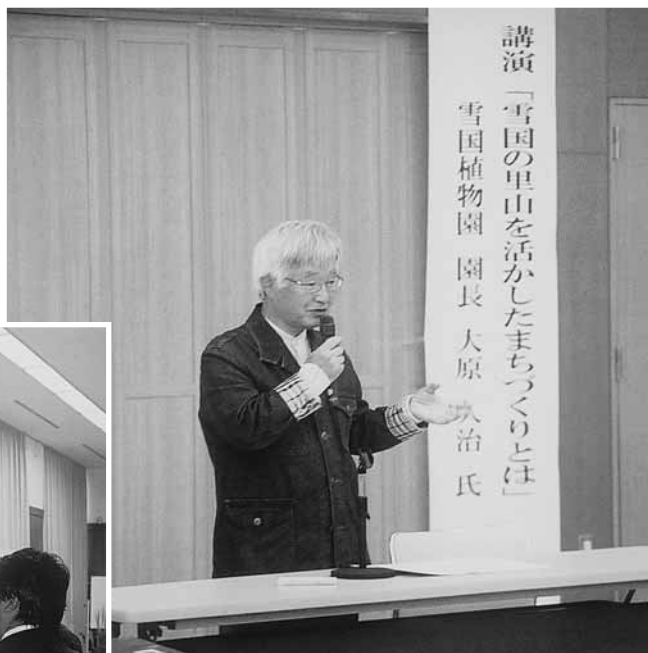 講演 「雪国の里山を活かしたまちづくりとは」
雪国植物園 園長 大原 久治 氏